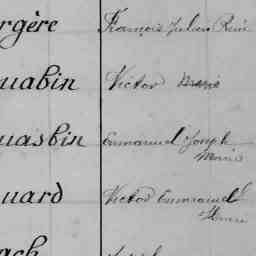 rgère François Julien René
uabin Victor Marie
uasbin Emmanuel Joseph
Marie
uard Victor Emmanuel
Henri
ach Joseph